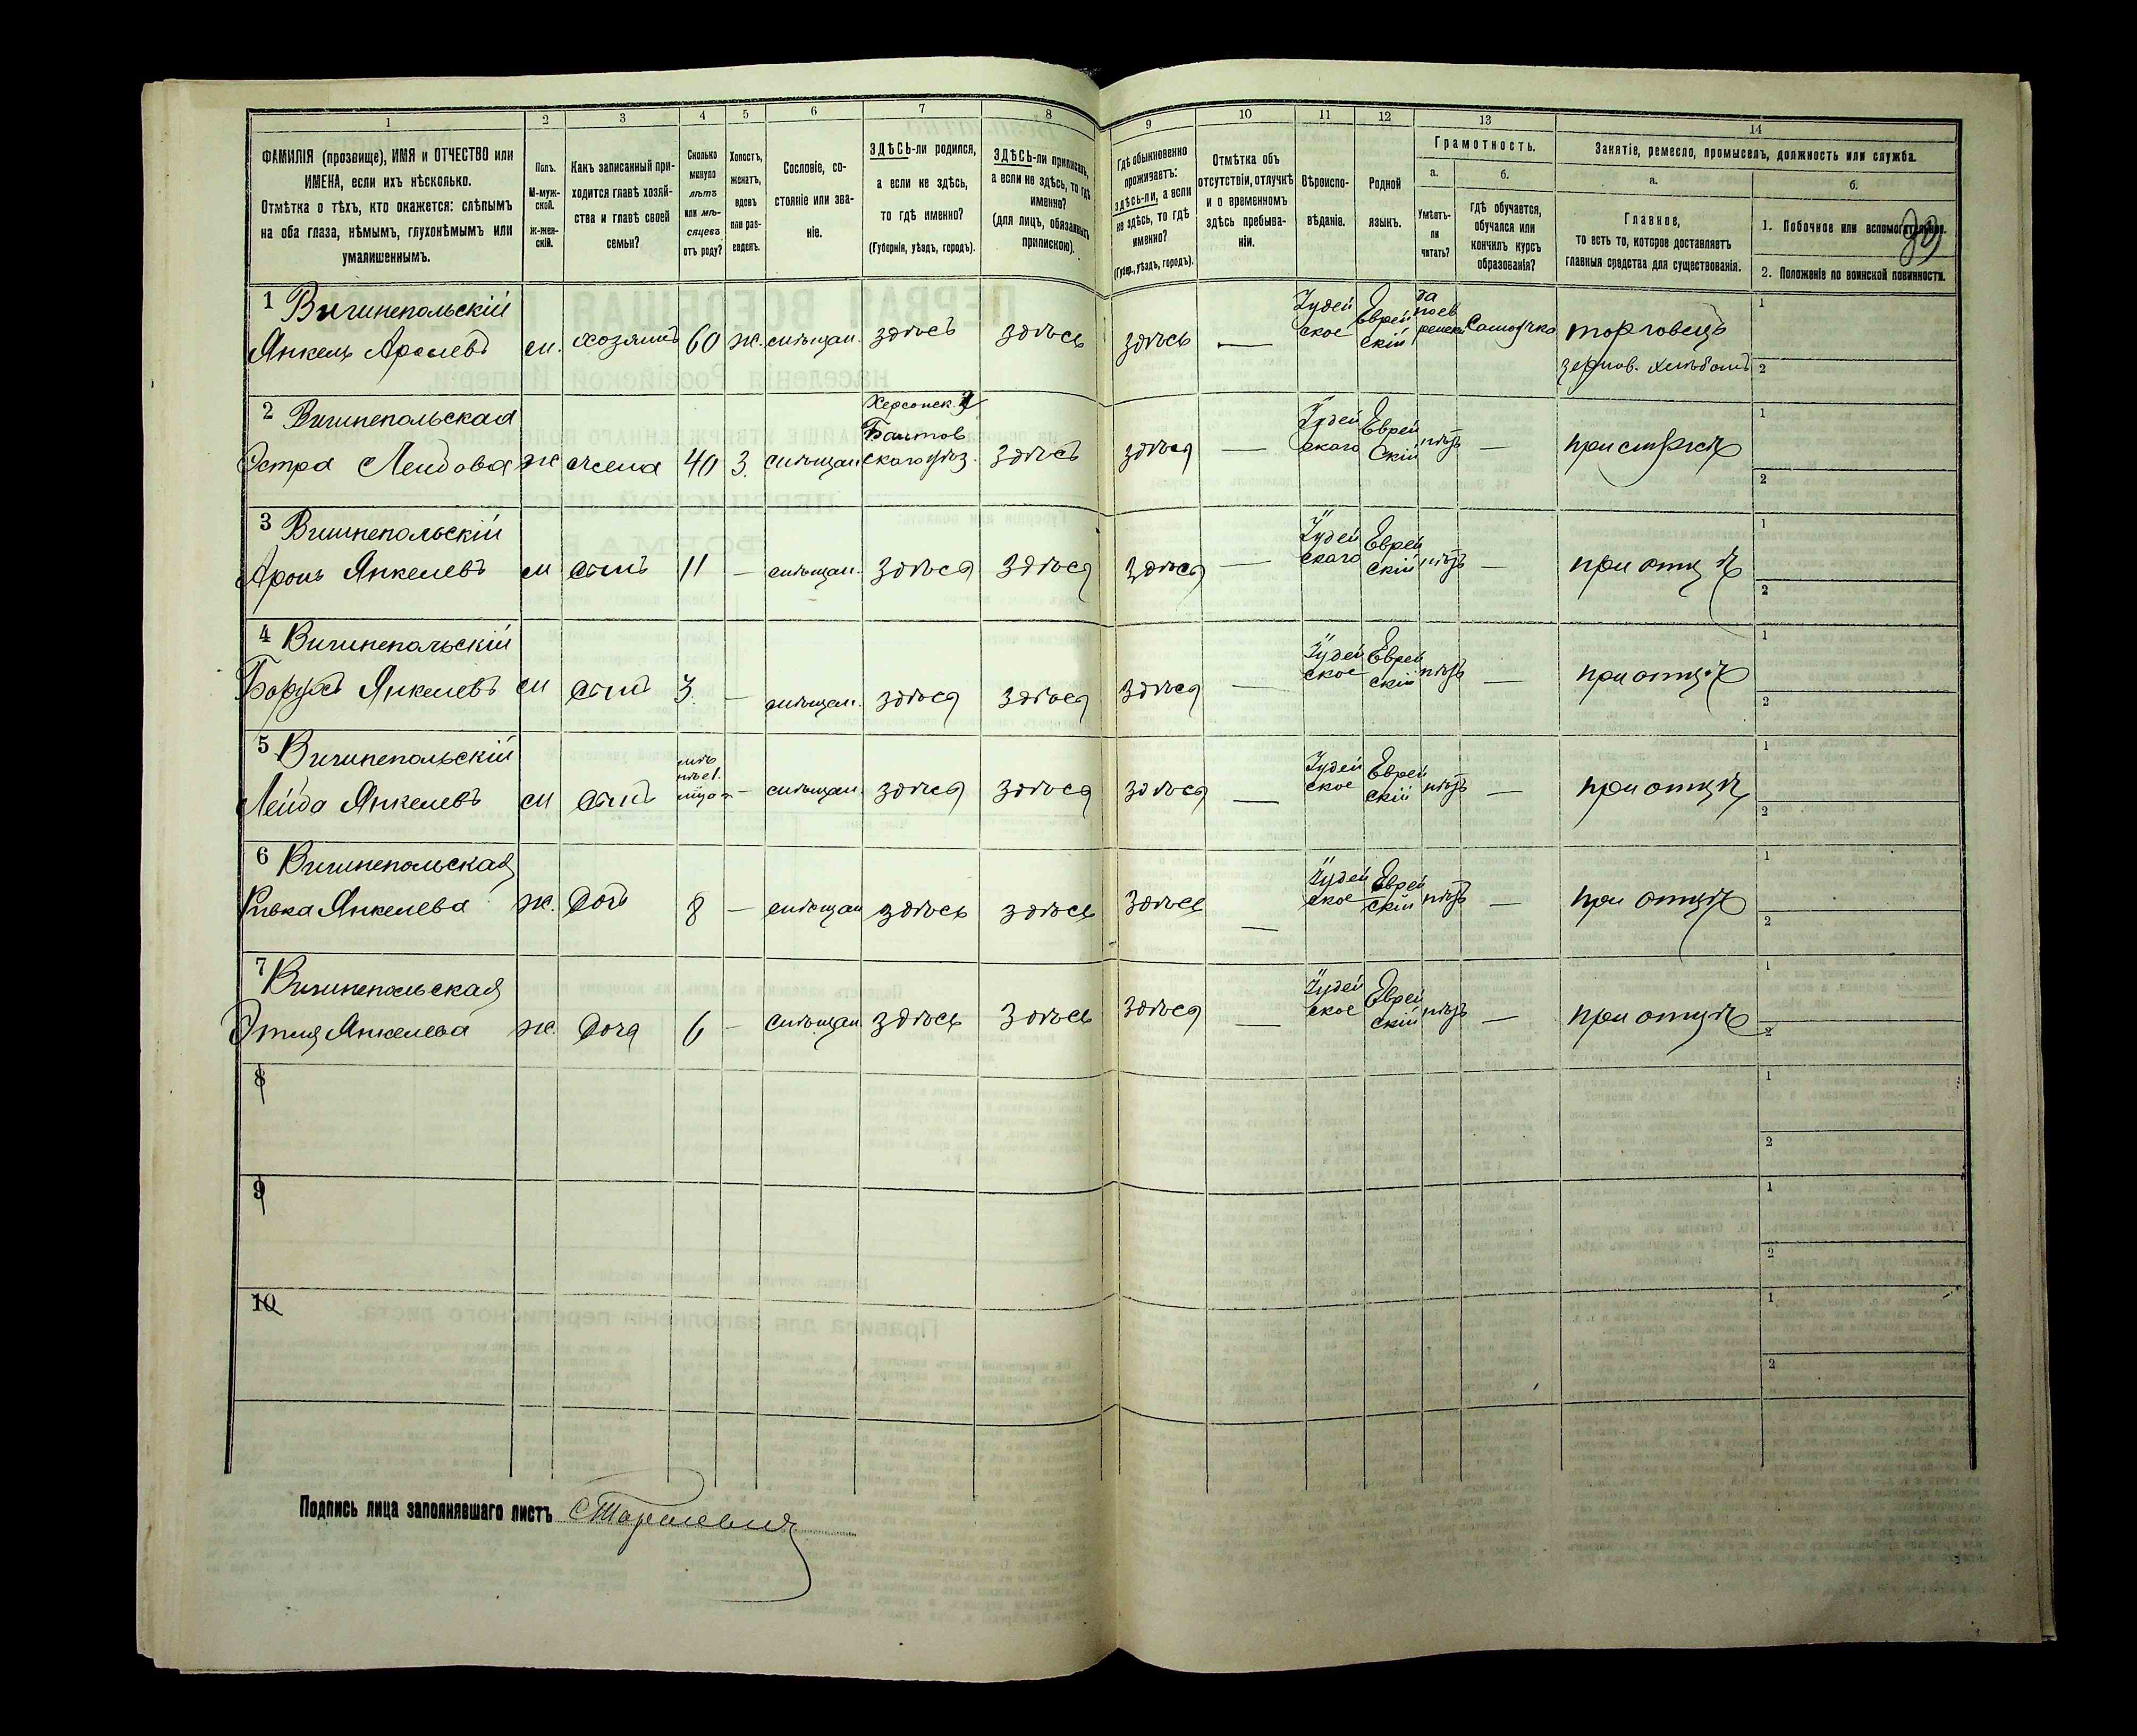 1 2 3 4 5 6 7 8 9 10 11 12 13 14
ФАМИЛІЯ (прозвище), ИМЯ и ОТЧЕСТВО или
ИМЕНА, если ихъ нѣсколько.
Отмѣтка о тѣхъ, кто окажется: слѣпымъ
на оба глаза, нѣмымъ, глухонѣмымъ или
умалишеннымъ.
Полъ.
М-муж-
ской.
Ж-жен-
скій.
Какъ записанный при-
ходится главѣ хозяй-
ства и главѣ своей
семьи?
Сколько
минуло
лѣтъ
или мѣ-
сяцевъ
отъ роду?
Холостъ,
женатъ,
вдовъ
или раз-
веденъ.
Сословіе, со-
стояніе или зва-
ніе.
ЗДѢСЬ-ли родился,
а если не здѣсь,
то гдѣ именно?
(Губернія, уѣздъ, городъ).
ЗДѢСЬ-ли приписанъ,
а если не здѣсь, то гдѣ
именно?
(для лицъ, обязанныхъ
припискою).
Гдѣ обыкновенно
проживаетъ:
здѣсь-ли, а если
не здѣсь, то гдѣ
именно?
(Губер., уѣздъ, городъ).
Отмѣтка объ
отсутствіи, отлучкѣ
и о временномъ
здѣсь пребыва-
ніи.
Вѣроиспо-
вѣданіе.
Родной
языкъ.
Грамотность.
а.
Умѣетъ-
ли
читать?
б.
гдѣ обучается,
обучался или
кончилъ курсъ
образованія?
Занятіе, ремесло, промыселъ, должность или служба.
а.
Главное,
то есть то, которое доставляетъ
главныя средства для существованія.
б.
1. Побочное или вспомогательное.
2. Положеніе по воинской повинности.
1 Вишнепольскій
Янкель Ароневъ м. хозяинъ 60 ж. мѣщан. здѣсь здѣсь здѣсь — Іудей
ское Еврей
скій да
по ев
рейски самоучка торговецъ
зернов. хлѣбомъ
1
2
2 Вишнепольская
Эстра Лейбова ж жена 40 з. мѣщан Херсонск. г
скаго уѣз. здѣсь здѣсь — Іудей
скаго Еврей
скій нѣтъ — при мужѣ
1
2
3 Вишнепольскій
Аронъ Янкелевъ м сынъ 11 — мѣщан. здѣсь здѣсь здѣсь — Іудей
скаго Еврей
скій нѣтъ — при отцѣ
1
2
4 Вишнепольскій
Борухъ Янкелевъ м сынъ 3. — мѣщан. здѣсь здѣсь здѣсь — Іудей
ское Еврей
скій нѣтъ — при отцѣ
1
2
5 Вишнепольскій
Лейба Янкелевъ м сынъ — мѣщан. здѣсь здѣсь здѣсь — Іудей
ское Еврей
скій нѣтъ — при отцѣ
1
2
6 Вишнепольская
Ривка Янкелева ж. дочь 8 — мѣщан здѣсь здѣсь здѣсь — Іудей
ское Еврей
скій нѣтъ — при отцѣ
1
2
7 Вишнепольская
Янкелева ж. дочь 6 — мѣщан здѣсь здѣсь здѣсь — Іудей
ское Еврей
скій нѣтъ — при отцѣ
1
2
8
1
2
9
1
2
10
1
2
Подпись лица заполнявшаго листъ